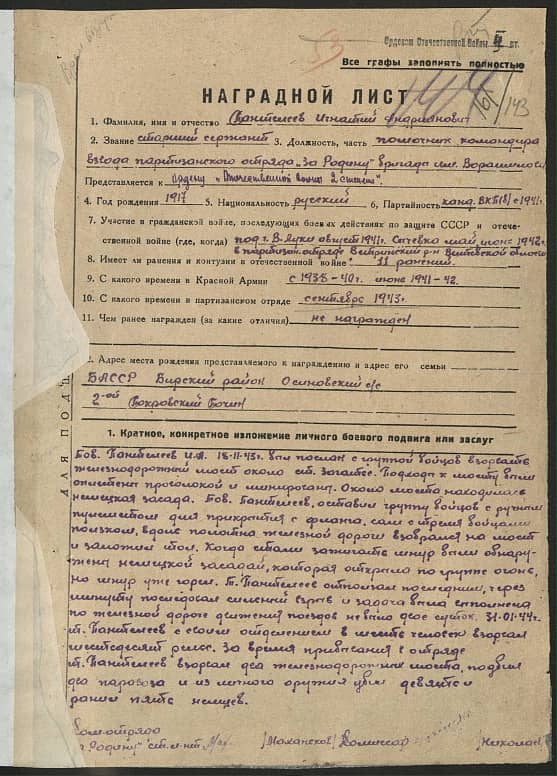 Орденом Отечественной Войны II ст.
53
Все графы заполнять полностью
НАГРАДНОЙ ЛИСТ
143
1. Фамилия, имя и отчество Пантелеев Игнатий Андрианович
2. Звание старший сержант 3. Должность, часть помощник командира
взвода партизанского отряда „За Родину" бригада им. Ворошилова
Представляется к ордену „Отечественной войны 2 степени".
4. Год рождения 1917 5. Национальность русский 6. Партийность канд. ВКП(б) с 1941 г.
7. Участие в гражданской войне, последующих боевых действиях по защите СССР и отече-
ственной войне (где, когда) под г. В-Луки август 1941 г. Сычевка май июнь 1942 г.
в партизан. отряде Ветринский р-н Витебской области
8. Имеет ли ранения и контузии в отечественной войне: 11 ранений
9. С какого времени в Красной Армии с 1938-40 г. июнь 1941-42.
10. С какого времени в партизанском отряде сентябрь 1943 г.
11. Чем ранее награжден (за какие отличия) не награжден
2. Адрес места рождения представляемого к награждению и адрес его семьи
БАССР Бирский район Осиновский с/с
2-ой Покровский Починок
ДЛЯ ПОДШ
1. Краткое, конкретное изложение личного боевого подвига или заслуг
Тов. Пантелеев И.А. 18-11-43 г. был послан с группой бойцов взорвать
железнодорожный мост около ст. Загатье. Подход к мосту был
оплетен проволокой и минирован. Около моста находилась
немецкая засада. Тов. Пантелеев, оставив группу бойцов с ручным
пулеметом для прикрытия с фланга, сам с тремя бойцами
ползком, вдоль полотна железной дороги взобрался на мост
и заложил тол. Когда стали зажигать шнур были обнару-
жены немецкой засадой, которая открыла по группе огонь,
но шнур уже горел. Т. Пантелеев отползал последним, через
минуту последовал сильный взрыв и задача была выполнена
по железной дороге движения поездов не было двое суток. 31-01-44 г.
т. Пантелеев с своим отделением в шесть человек взорвал
шестьдесят рельс. За время пребывания в отряде
т. Пантелеев взорвал два железнодорожных моста, подбил
два паровоза и из личного оружия убил девять и
ранил пять немцев.
Ком. отряда
„За Родину" ст. л-нт /Маханьков/ Комиссар /Николаев